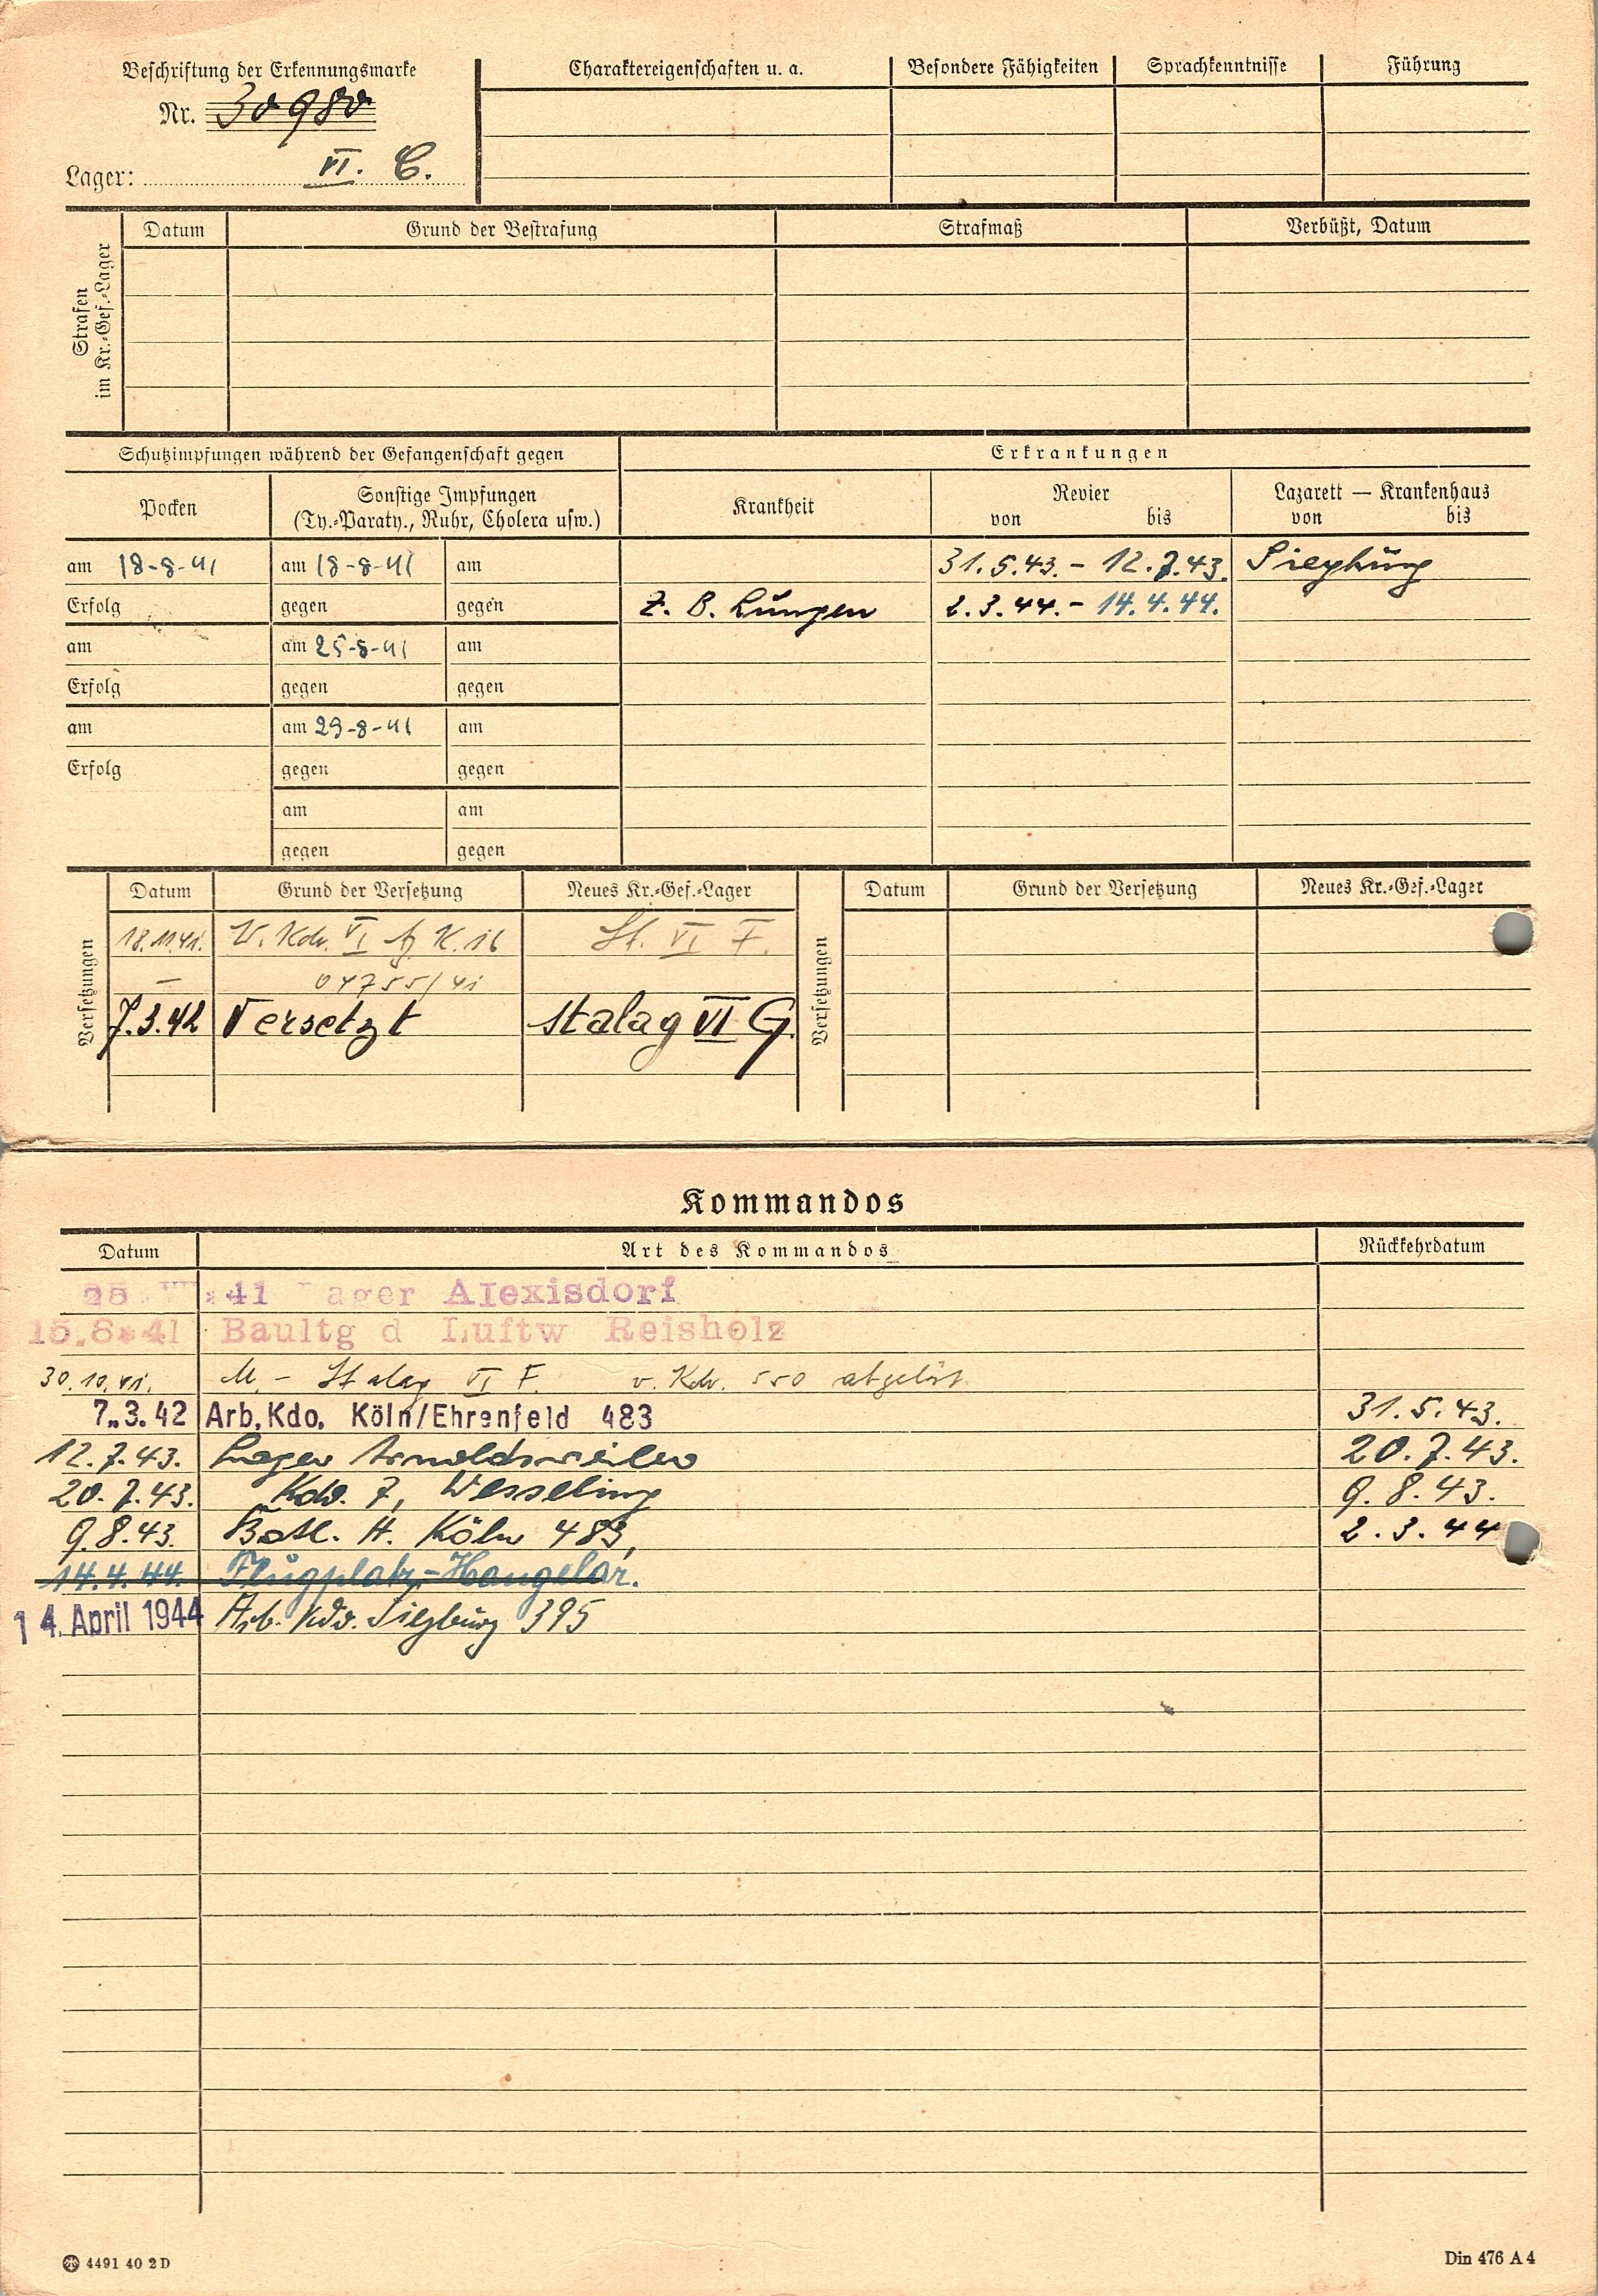 Beschriftung der Erkennungsmarke
Nr. 30980
Lager: VI. C.
Charaktereigenschaften u. a. Besondere Fähigkeiten Sprachkenntnisse Führung
Strafen
im Kr.-Gef.-Lager
Datum Grund der Bestrafung Strafmaß Verbüßt, Datum
Schutzimpfungen während der Gefangenschaft gegen Erkrankungen
Pocken
Sonstige Impfungen
(Ty.-Paraty., Ruhr, Cholera usw.)
Krankheit
Revier
von bis
Lazarett — Krankenhaus
von bis
am 18-8-41 am 18-8-41 am 31.5.43. - 12.7.43. Siegburg
Erfolg gegen gegen Z. B. Lungen 2.3.44. - 14.4.44.
am am 25-8-41 am
Erfolg gegen gegen
am am 29-8-41 am
Erfolg gegen gegen
am am
gegen gegen
Versetzungen
Datum Grund der Versetzung Neues Kr.-Gef.-Lager
Versetzungen
Datum Grund der Versetzung Neues Kr.-Gef.-Lager
18.11.41. W. Kdo. VI St. VI F.
— 04755/41
7.3.42 Versetzt Stalag VI G.
Kommandos
Datum Art des Kommandos Rückkehrdatum
41 ager Alexisdorf
15.8*41 Baultg d Luftw Reisholz
30.10.41. M. - Stalag VI F. v. Kdo. 550 abgelöst
7.3.42 Arb.Kdo. Köln/Ehrenfeld 483 31.5.43.
12.7.43. Lager Arnoldsweiler 20.7.43.
20.7.43. Kdo. 7, Wesseling 9.8.43.
9.8.43. Batl. H. Köln 483, 2.3.44
14.4.44. Flugplatz-Hangelar.
14. April 1944 Arb. Kdo. Siegburg 395
4491 40 2 D
Din 476 A 4